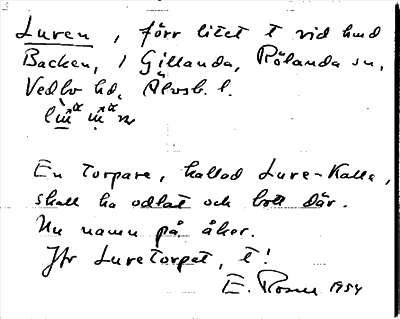 Luren, förr litet t vid hmd
Backen, i Gillanda, Rölanda sn,
Vedbo hd, Älvsb. l.
En torpare, kallad Lure-Kalle,
skall ha odlat och bott där.
Nu namn på åker.
Jfr Luretorpet, t!
E. Rosen 1954